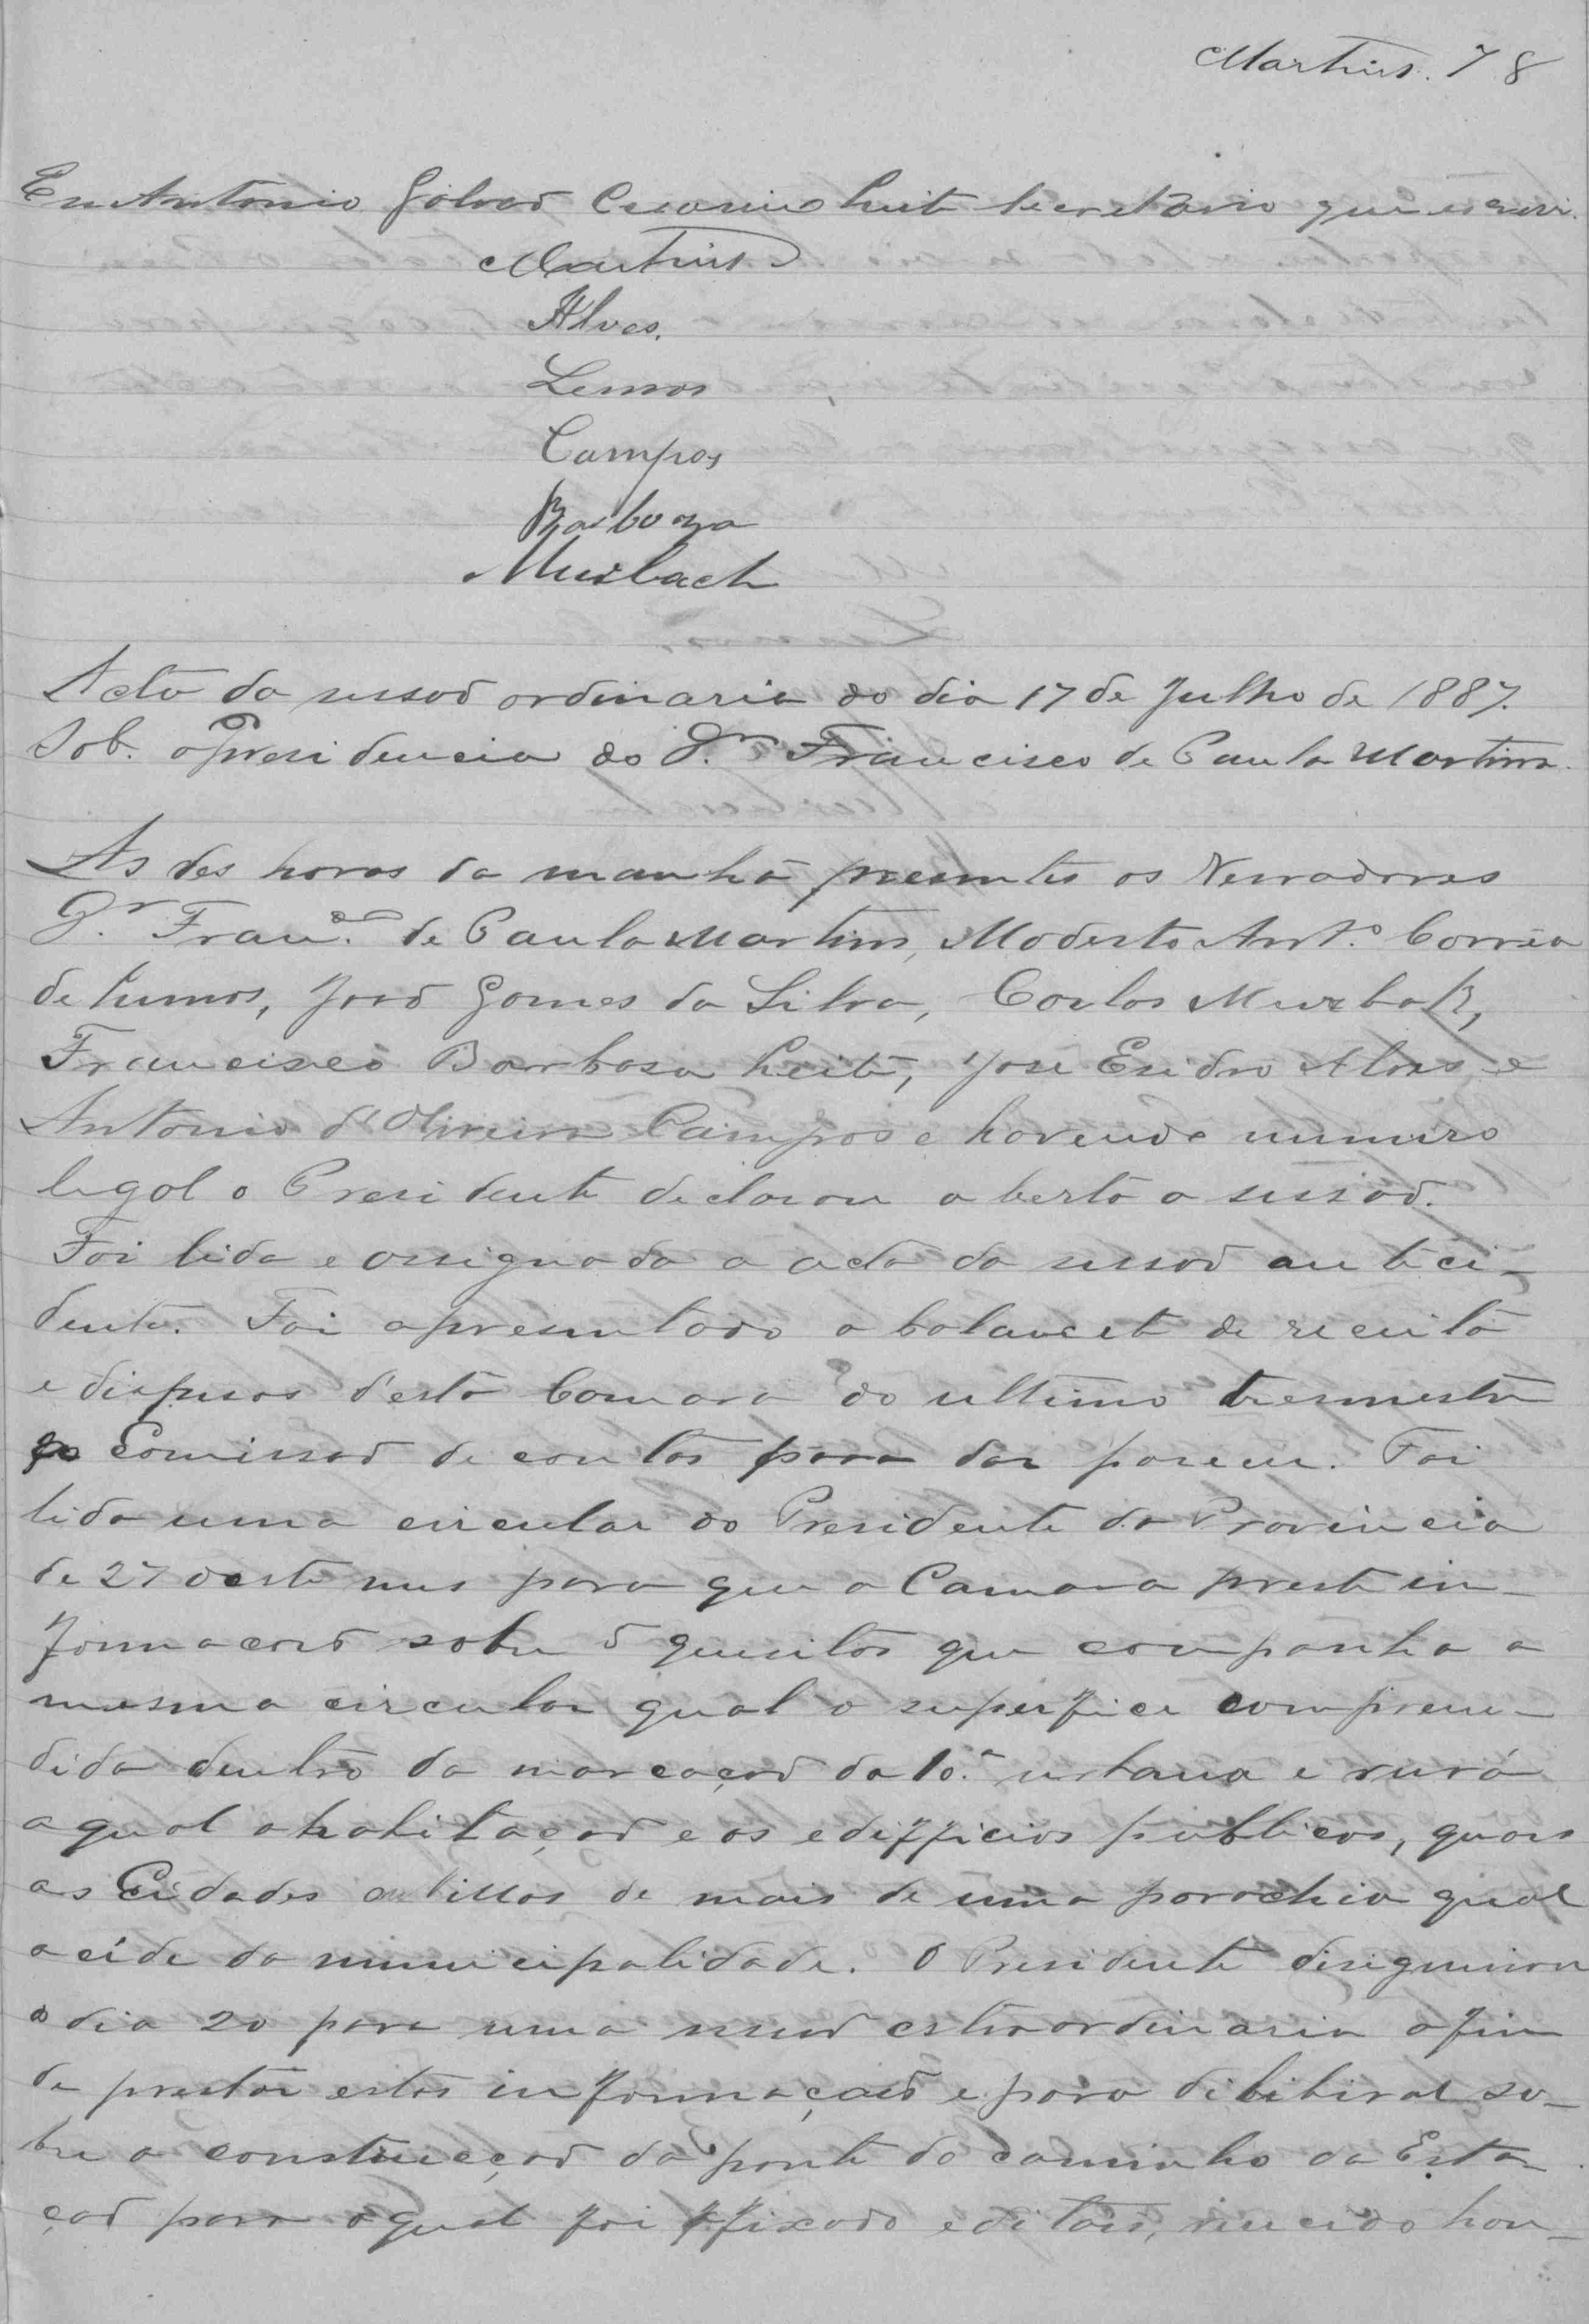 Martins. 78
Eu Antonio Galvaõ Cesarino Leite Secretario que escrevi.
Martins
Alves.
Lemos
Campos
Barboza
Murbach
Acta da sessaõ ordinaria do dia 17 de Julho de 1887.
Sob. a Presidencia do Dr. Francisco de Paula Martins.
As des horas da manhã presentes os Vereadores
Dr. Franco. de Paula Martins, Modesto Anto. Corrêa
de Lemos, Joaõ Gomes da Silva, Carlos Murbak,
Francisco Barbosa Leite, José Esidro Alves e
Antonio d'Oliveira Campos e havendo numero
legal o Presidente declarou aberta a sessaõ.
Foi lida e assignada a acta da sessaõ anteci-
dente. Foi apresentado o balancete de receita
e dispesas d'esta Camara do ultimo tremestre
a Comissaõ de contas para dar parecer. Foi
lida uma circular do Presidente da Provincia
de 27 deste mes para que a Camara preste in-
formacoes sobre 5 quesitos que companha a
mesma circular qual a superfice compreen-
dida dentro da marcaçaõ da 10ª urbana e rurá
a qual a habitaçaõ e os edifficios publicos, quais
as Cidades ou Villas de mais de uma parochia qual
a cide da municipalidade. O Presidente disignou
o dia 20 para uma sessaõ estraordinaria afim
de prestar estas informaçoes e para delibirar so-
bre a construcçaõ da ponte do caminho da Esta-
çaõ para o qual foi affixado editais, vencido hou-